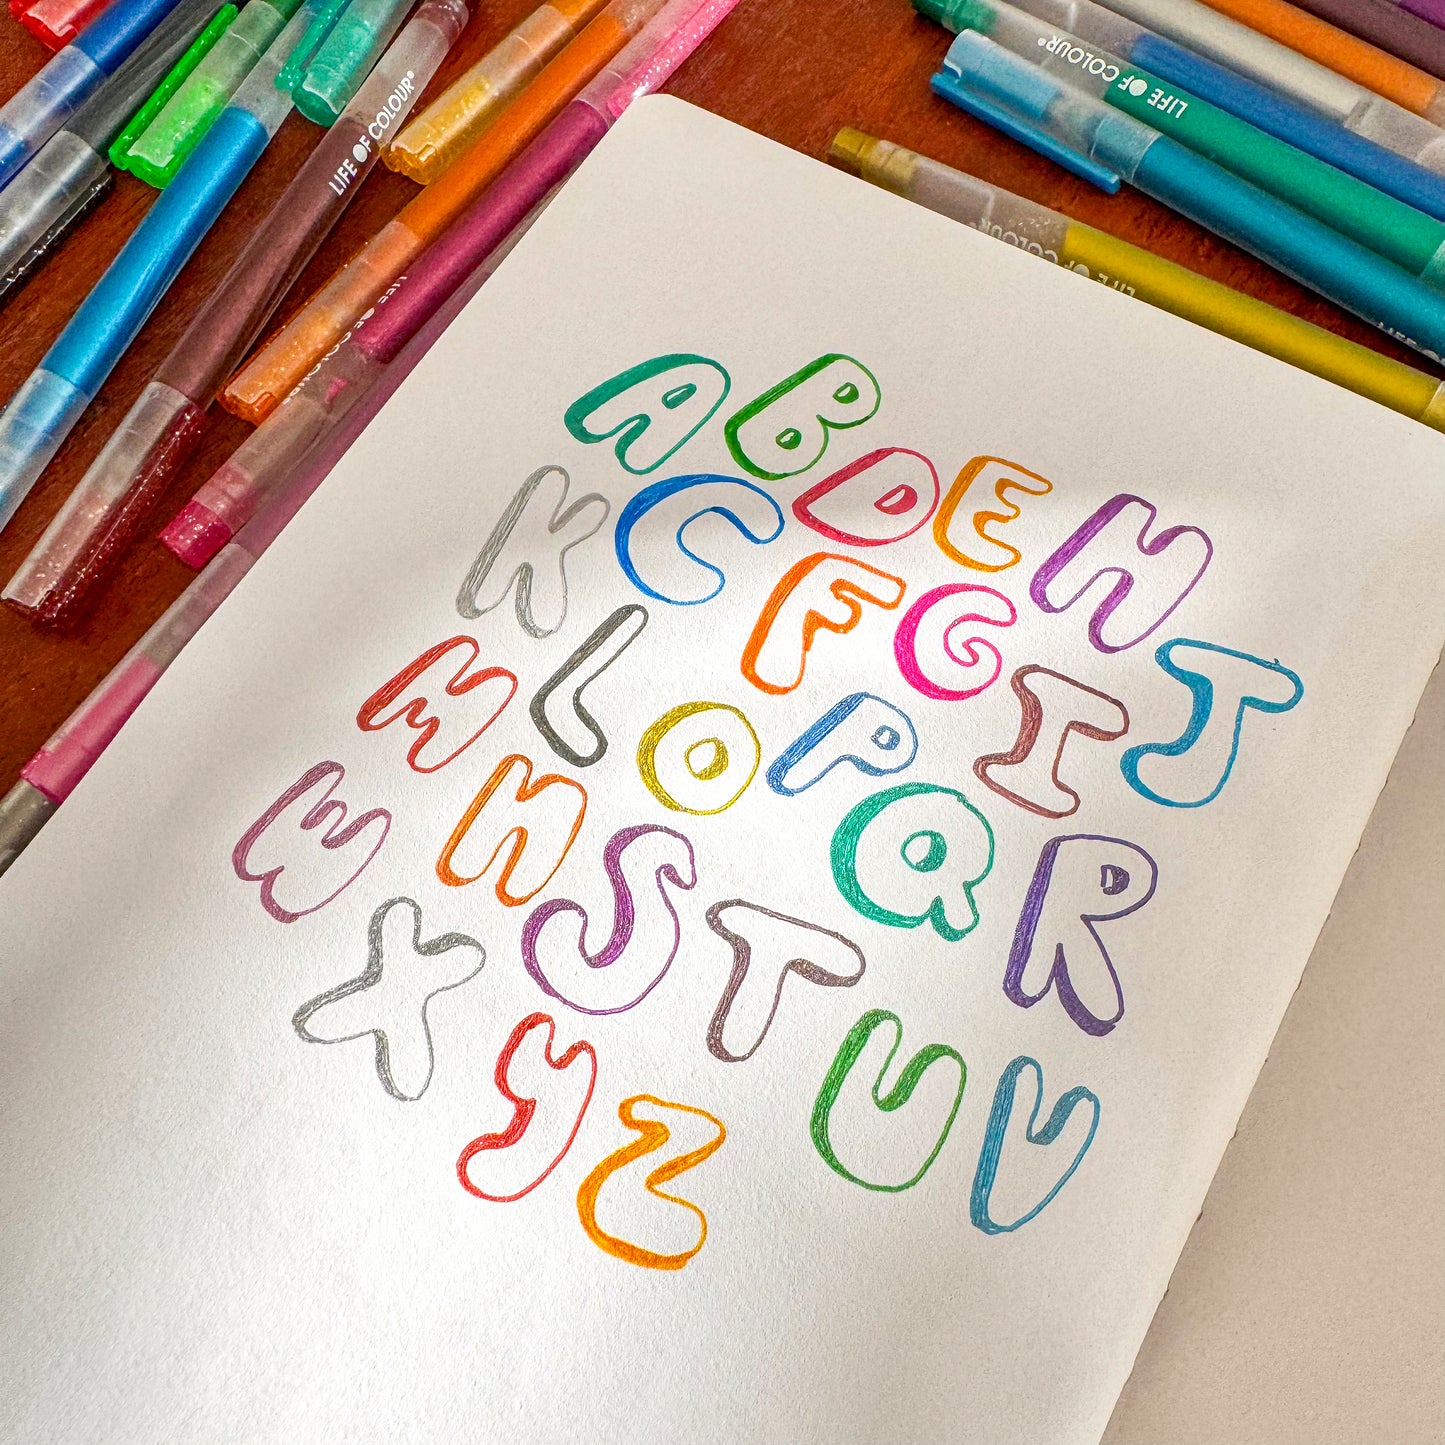 LIFE OF COLOUR
LIFE OF COLOUR
LIFE OF COLOUR
LIFE OF COLOUR
A B
K C D E H
L F G I J
M O P
W N S Q R
X T
Y Z U V